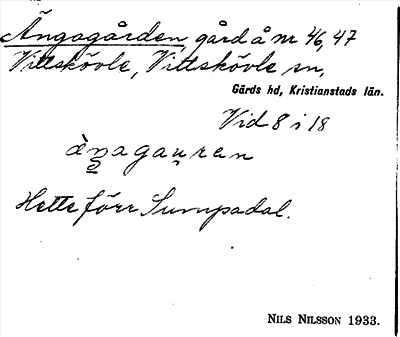 Ängagården, gård å nr 46, 47
Vittskövle, Vittskövle sn,
Gärds hd, Kristianstads län.
Vid 8 i 18
Hette förr Sumpadal.
NILS NILSSON 1933.